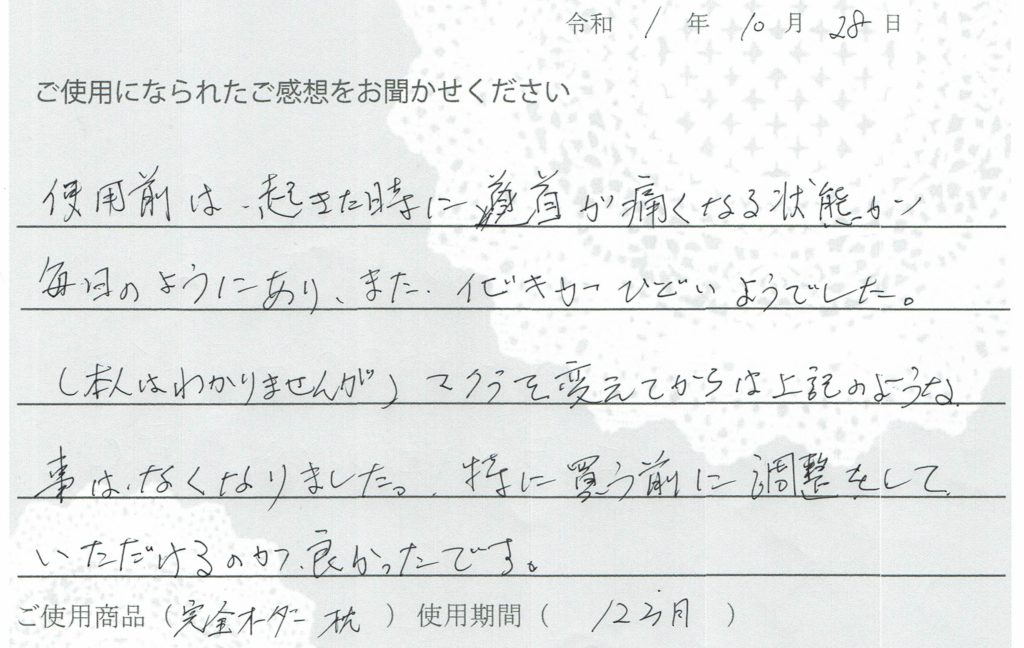 令和 1 年 10 月 28 日
ご使用になられたご感想をお聞かせください
使用前は、起きた時に首が痛くなる状態が
毎日のようにあり、また、イビキがひどいようでした。
(本人はわかりませんが) マクラを変えてからは上記のような
事は、なくなりました。特に買う前に調整をして
いただけるのが、良かったです。
ご使用商品 (完全オーダー枕) 使用期間 ( 12ヵ月 )